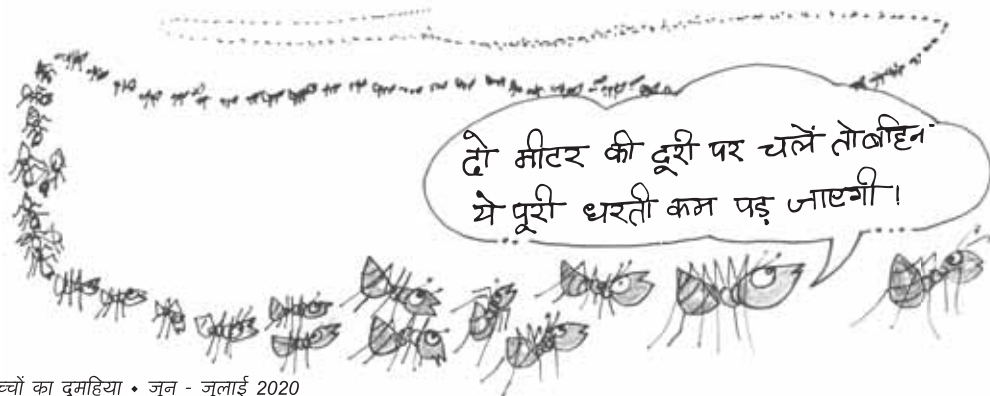 दो मीटर की दूरी पर चलें तो बहिन
ये पूरी धरती कम पड़ जाएगी।
च्चों का दुमहिया • जून - जुलाई 2020